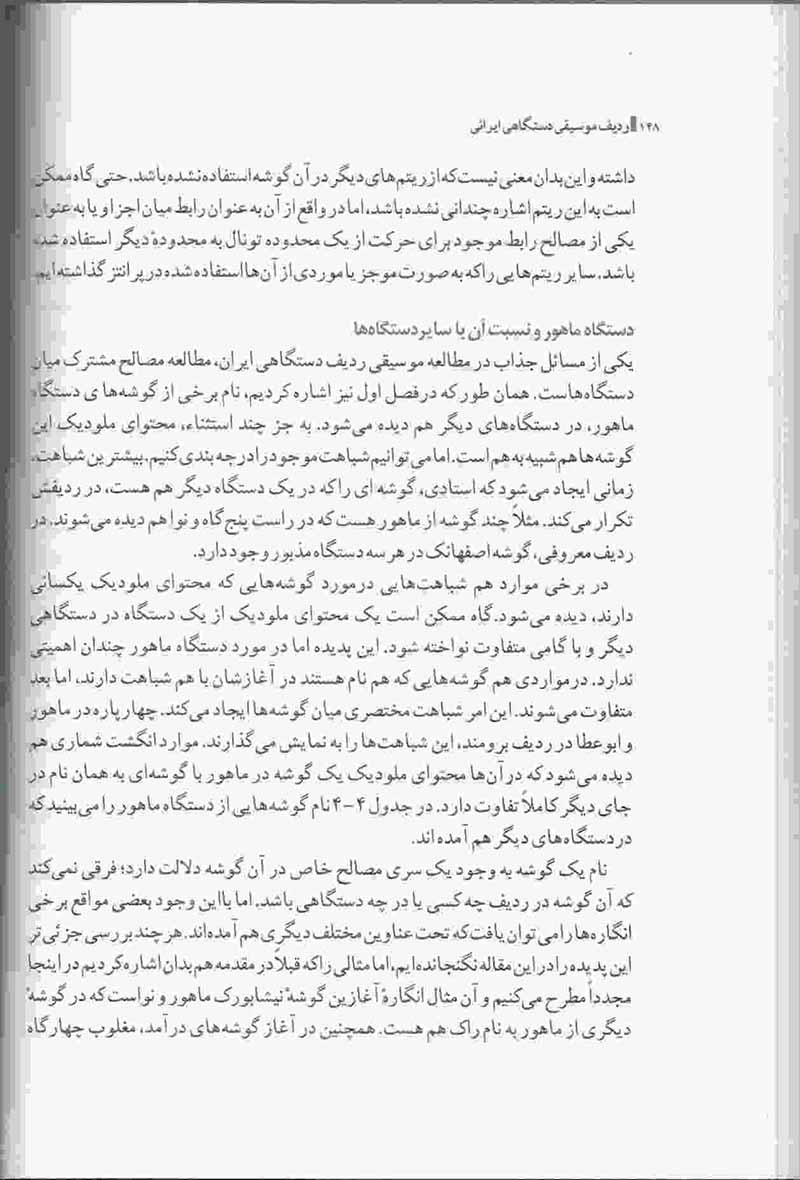 ۱۴۸ ردیف موسیقی دستگاهی ایرانی
داشته و این بدان معنی نیست که از ریتم‌های دیگر در آن گوشه استفاده نشده باشد. حتی گاه ممکن
است به این ریتم اشاره چندانی نشده باشد، اما در واقع از آن به عنوان رابط میان اجزا و یا به عنوان
یکی از مصالح رابط موجود برای حرکت از یک محدوده تونال به محدودهٔ دیگر استفاده شده
باشد. سایر ریتم‌هایی را که به صورت موجز یا موردی از آن‌ها استفاده شده در پرانتز گذاشته‌ایم.
دستگاه ماهور و نسبت آن با سایر دستگاه‌ها
یکی از مسائل جذاب در مطالعه موسیقی ردیف دستگاهی ایران، مطالعه مصالح مشترک میان
دستگاه‌هاست. همان طور که در فصل اول نیز اشاره کردیم، نام برخی از گوشه‌ها ی دستگاه
ماهور، در دستگاه‌های دیگر هم دیده می‌شود. به جز چند استثناء، محتوای ملودیک این
گوشه‌ها هم شبیه به هم است. اما می توانیم شباهت موجود را درجه بندی کنیم. بیشترین شباهت،
زمانی ایجاد می‌شود که استادی، گوشه ای را که در یک دستگاه دیگر هم هست، در ردیفش
تکرار می‌کند. مثلاً چند گوشه از ماهور هست که در راست پنج‌گاه و نوا هم دیده می‌شوند. در
ردیف معروفی، گوشه اصفهانک در هر سه دستگاه مذبور وجود دارد.
در برخی موارد هم شباهت‌هایی درمورد گوشه‌هایی که محتوای ملودیک یکسانی
دارند، دیده می‌شود. گاه ممکن است یک محتوای ملودیک از یک دستگاه در دستگاهی
دیگر و با گامی متفاوت نواخته شود. این پدیده اما در مورد دستگاه ماهور چندان اهمیتی
ندارد. درمواردی هم گوشه‌هایی که هم نام هستند در آغازشان با هم شباهت دارند، اما بعد
متفاوت می‌شوند. این امر شباهت مختصری میان گوشه‌ها ایجاد می‌کند. چهارپاره در ماهور
و ابوعطا در ردیف برومند، این شباهت‌ها را به نمایش می‌گذارند. موارد انگشت شماری هم
دیده می‌شود که در آن‌ها محتوای ملودیک یک گوشه در ماهور با گوشه‌ای به همان نام در
جای دیگر کاملاً تفاوت دارد. در جدول ۴-۴ نام گوشه‌هایی از دستگاه ماهور را می‌بینید که
در دستگاه‌های دیگر هم آمده اند.
نام یک گوشه به وجود یک سری مصالح خاص در آن گوشه دلالت دارد؛ فرقی نمی‌کند
که آن گوشه در ردیف چه کسی یا در چه دستگاهی باشد. اما با این وجود بعضی مواقع برخی
انگاره‌ها را می توان یافت که تحت عناوین مختلف دیگری هم آمده‌اند. هر چند بررسی جزئی‌تر
این پدیده را در این مقاله نگنجانده‌ایم، اما مثالی را که قبلاً در مقدمه هم بدان اشاره کردیم در اینجا
مجدداً مطرح می‌کنیم و آن مثال انگارهٔ آغازین گوشهٔ نیشابورک ماهور و نواست که در گوشهٔ
دیگری از ماهور به نام راک هم هست. همچنین در آغاز گوشه‌های درآمد، مغلوب چهارگاه